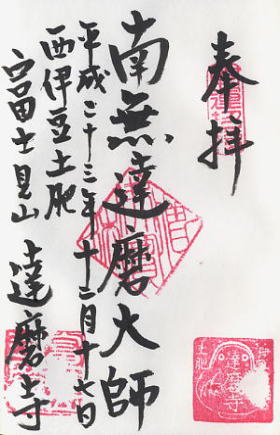 奉拝
南無達磨大師
平成二十三年十二月十七日
西伊豆土肥
富士見山
達磨寺
達磨寺
土肥